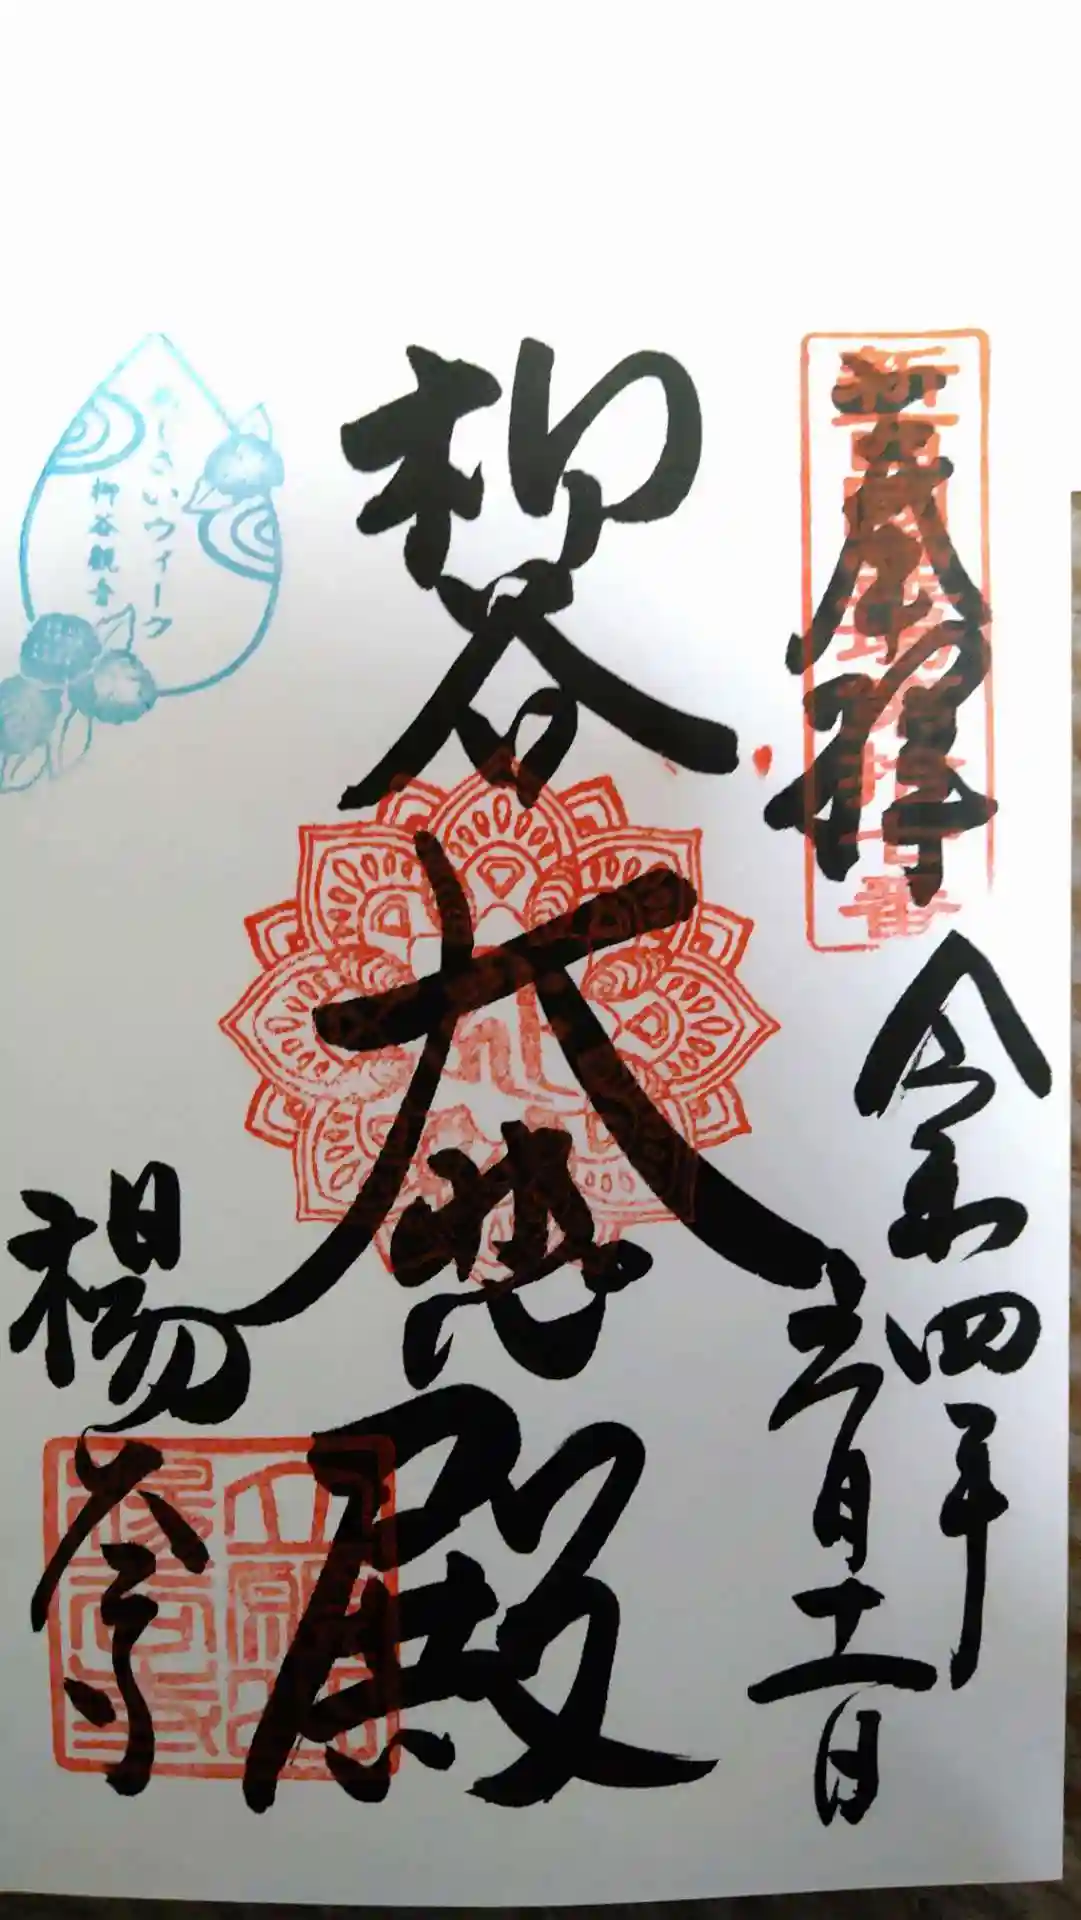 新西国霊場第十七番
奉拝
令和四年
六月十一日
柳谷
大悲殿
楊谷寺
あじさいウィーク
柳谷観音